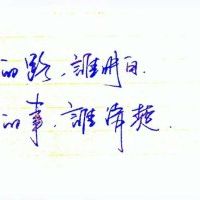 的路,誰明白.
的事,誰清楚.